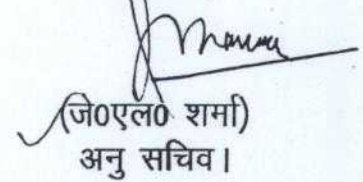 (जे0एल0 शर्मा)
अनु सचिव।